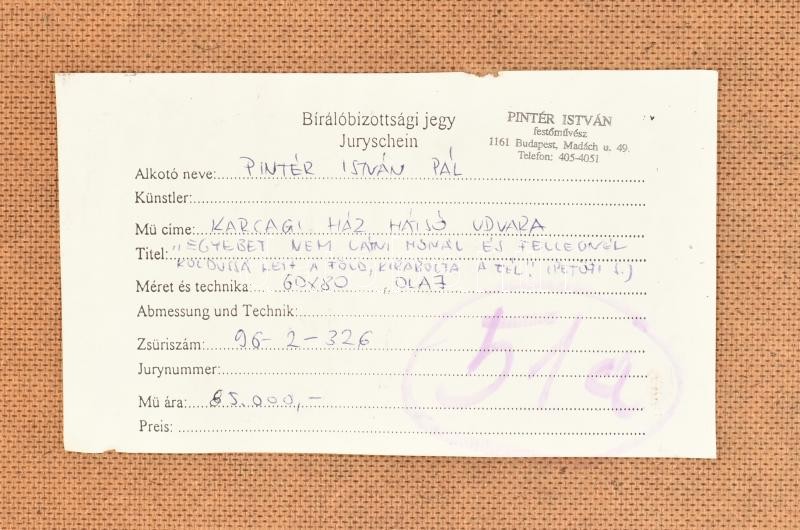 Bírálóbizottsági jegy
Juryschein
PINTÉR ISTVÁN
festőművész
1161 Budapest, Madách u. 49.
Telefon: 405-4051
Alkotó neve: PINTÉR ISTVÁN PÁL
Künstler:
Mü cime: KARCAGI HÁZ HÁTSÓ UDVARA
Titel: "EGYEBET NEM LÁTNI HÓNÁL ÉS FELLEGNÉL
KOLDUSSÁ LETT A FÖLD, KIRABOLTA A TÉL." (PETŐFI S.)
Méret és technika: 60x80 OLAJ
Abmessung und Technik:
Zsüriszám: 96-2-326
Jurynummer:
Mü ára: 85.000,-
Preis:
51a